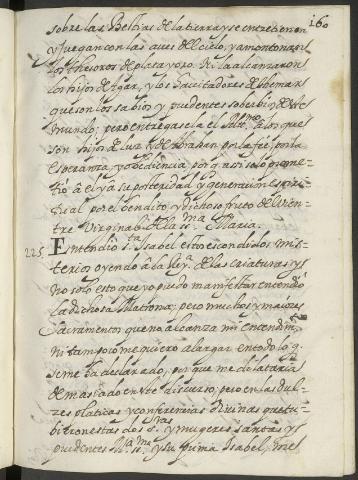 160
sobre las Bestias de la tierra, y se entretienen
y juegan con las aues del cielo, y amontonan
los thesoros de plata y oro. Ni la alcanzaron
los hijos de Agar, y los habitadores de Theman
que son los sabios y prudentes soberbios de este
mundo; pero entregasela el Alt.mo a los que
son hijos de luz y de Abrahan por la fee, por la
esperanza, y obediencia, porque assi se lo prome-
tió â el y â su posteridad y generacion espiri-
tual por el bendito y dichoso fruto del vien-
tre Virginal de la ss.ma Maria.
225. Entendió s.ta Isabel estos escondidos mis-
terios oyendo â la Rey.a de las criaturas, y
no solo esto que yo puedo manifestar entendió
la dichosa Matrona; pero muchos y maiores
sacramentos que no alcanza mi entendim.to
ni tampoco me quiero alargar en todo lo q.
se me ha declarado, porque me dilataria
demasiado en este discurso; pero en las dul-
zes platicas y conferencias diuinas que tu-
bieron estas dos s.ras y mugeres santas y
prudentes M.a ss.ma y su prima Isabel, me